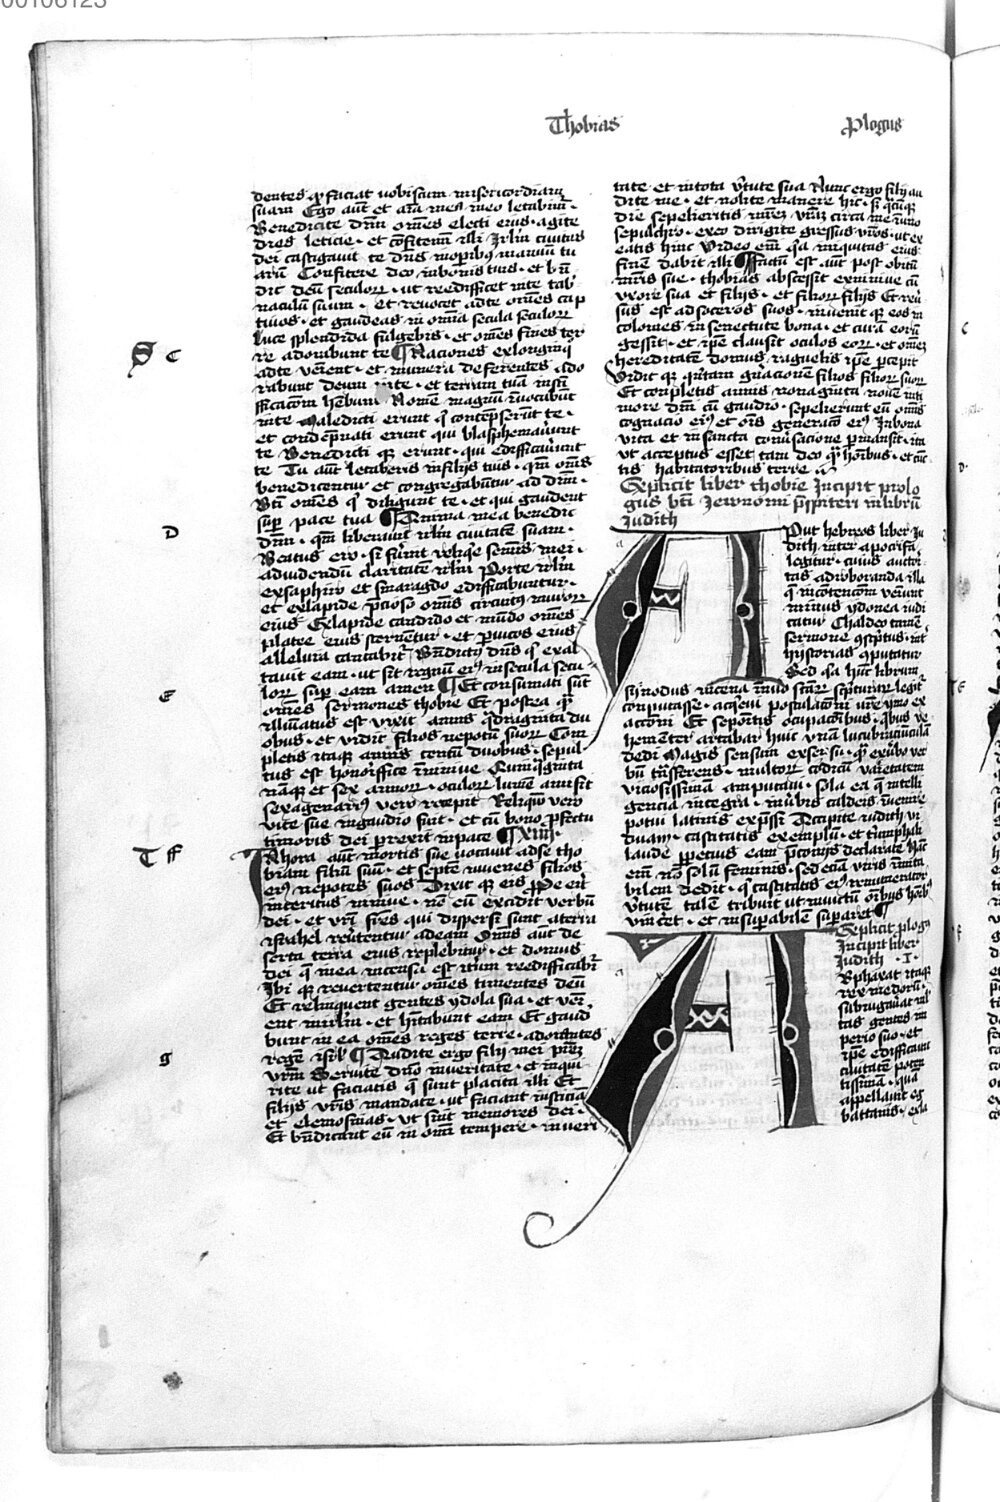 00106123
Thobias
Plogus
dentes qͥ faciat uobiscum misericordiam
suam Ego aut̄ et aīa mea in eo letabim̄
Benedicite dn̄m om̄es electi eius · agite
dies leticie · et cōfitemī illi Jrl̄m ciuitas
dei castigauit te dn̄s in opibꝫ manuū tu
arū Confitere deo in bonis tuis · et bn̄
dic deū seculoꝝ · ut reedificet in te tab
naculū suum · et reuocet ad te om̄es cap
tiuos · et gaudeas in om̄ia secula seculoꝝ
luce splendida fulgebis · et om̄es fines ter
re adorabunt te ¶ Naciones ex longinq̄
ad te ueīent · et munera deferentes ado
rabunt deum in te · et terram tuā in sc̄i
ficacōm hēbunt Nomē magnū īuocabūt
in te Maledicti erunt qͥ contēpserūt te ·
et condēpnati erunt qui blasphemauīnt
te Benedicti qꝫ erunt · qui edificauīnt
te Tu aut̄ letaberis in filijs tuis · qm̄ om̄s
benedicentur et congregabūtur ad dn̄m ·
Bt̄i om̄es qͥ diligunt te · et qui gaudent
suꝑ pace tua ¶ Anima mea benedic
dn̄m · qm̄ liberauit irl̄m ciuitatē suam ·
Beatus ero · si fūint reliq̄e seīs mei ·
ad uidendū claritatē irl̄m Porte irl̄m
ex saphiro et smaragdo edificabuntur ·
et ex lapide p̄cioso om̄is circuitꝰ muroꝝ
eius Ex lapide candido et mūdo om̄es
platee eius sternētur · et ꝑ uicos eius
alleluia cantabit̄ Bn̄dictꝰ dn̄s qͥ exal
tauit eam · ut sit regnū eiꝰ in secula secu
loꝝ suꝑ eam amen ¶ Et consumati sūt
om̄es sermones thobie Et postea qͣ
illuīatus est uixit annis qͣdraginta du
obus · et uidit filios nepotū suoꝝ Com
pletis itaqꝫ annis centū duobus · sepul
tus est honorifice in niniue Quinqͣginta
nāqꝫ et sex annoꝝ · oculoꝝ lumē amisit
sexagenariꝰ uero recepit Reliqͫ uero
uite sue in gaudio fuit · et cū bono ꝓfectu
timoris dei ꝑrexit in pace ¶ xiiij ·
In hora aut̄ mortis sue uocauit ad se tho
biam filiū suū · et septē iuuenes filios
eiꝰ nepotes suos Dixit qꝫ eis Prope eīt
interitus niniue · nō eī excidit uerbū
dei · et nr̄i fr̄es qui dispersi sunt a terra
israhel reūtentur ad eam Om̄is aut̄ de
serta terra eius replebitur · et domus
dei q̄ in ea incensa est itūm reedificabit̄
Ibi qꝫ reuertentur om̄es timentes deū
Et relinquent gentes ydola sua · et ueī
ent in irl̄m · et hītabunt eam Et gaud
bunt in ea om̄es reges terre · adorantes
regē isrl̄ ¶ Audite ergo filij mei pr̄em
vr̄m Seruite dn̄o in ueritate · et inqui
rite ut faciatis q̄ sunt placita illi Et
filijs vr̄is mandate · ut faciant iusticias
et elemosinas · ut sint memores dei ·
Et bn̄dicant eū in om̄i tempore · in ueri
S C
D
E
T ff
g
tate et in tota v̓tute sua Nunc ergo filij au
dite me · et nolite manere hic · sꝫ qͣcūqꝫ
die sepelieritis mr̄em vr̄am circa me in uno
sepulchro · ex eo dirigite gressus vr̄os · ut ex
eatis hinc Video eī qͥa iniquitas eius
finē dabit illi ¶ Factū est aut̄ post obitū
mr̄is sue · thobias abscessit ex niniue cū
uxore sua et filijs · et filioꝝ filijs Et reū
sus est ad soceros suos · inuenit qꝫ eos in
colomes in senectute bona · et curā eorū
gessit · et ip̄e clausit oculos eoꝝ · et om̄em
hereditatē domus raguelis ip̄e ꝑcepit
Vidit qꝫ qͥntam gn̄acionē filios filioꝝ suoꝝ
Et completis annis nonaginta nouē in ti
more dn̄i cū gaudio · sepelierunt eū Om̄is
cognacio eiꝰ et om̄s generacō eiꝰ In bona
uita et in sancta conūsacione ꝑmansit · ita
ut acceptus esset tam deo qͣ hoībus · et cūc
tis habitatoribus terre ·
Explicit liber thobie Incipit prolo
gus bt̄i Jeronomi pr̄spiteri in librū
Judith
Aput hebreos liber Ju
dith inter apocrifa
legitur · cuius auctori
tas ad roboranda illa
q̄ in cōtencōem veīunt
minus ydonea iudi
catur Chaldeo tamē
sermone ɔscptus · int̄
hystorias ɔputatur
Sed qͥa hūc librum
synodus nicena in nūo sc̄aꝝ scpturaꝝ legit̄
conputasse · acq̄eui postulacōni vr̄e ymo ex
actoni Et sepositis occupacōibus · qͥbus ve
hemēter artabar huic vnā lucubraciūculā
dedi Magis sensum ex sensu · qͣ ex ūbo uer
bū trn̄sferens · multoꝝ codicū varietatem
viciosissimā amputaui · sola ea q̄ intelli
gencia integra · in ūbis caldeis inuenire
potui latinis exp̄ssi Accipite iudith vi
duam · castitatis exemplū · et triūphali
laude ꝑpetuis eam p̄conijs declarate Hāc
enī nō solū feminis · sed etiā viris īmita
bilem dedit · qͥ castitatis eiꝰ remunerator
v̓tutē talē tribuit ut inuictū om̄ibus hoībꝫ
vinceret · et insuꝑabilē suꝑaret ¶
Explicit plogꝰ
Incipit liber
Judith · I ·
Arphaxat itaqꝫ
rex medorū ·
subiugauāt ml̄
tas gentes im
perio suo · et
ip̄e edificauit
ciuitatē poten
tissimā · quā
appellauit eg
battanis · ex la